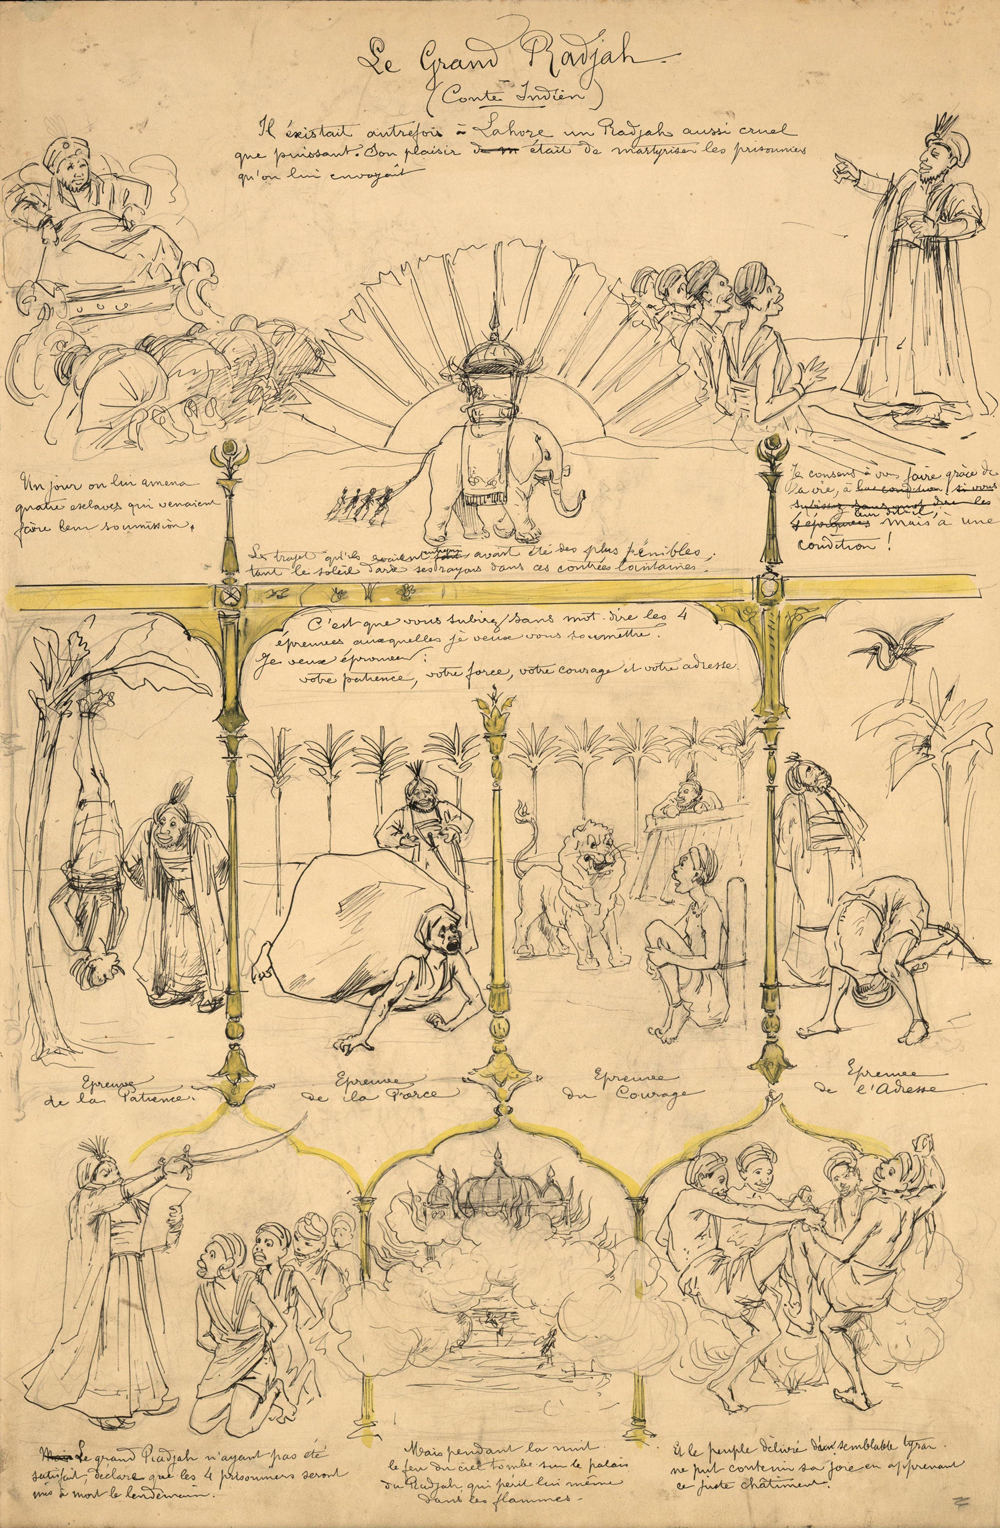 Le Grand Radjah.
(Conte Indien)
Il éxistait autrefois à Lahore un Radjah aussi cruel
que puissant. Son plaisir était de martyriser les prisonniers
qu'on lui envoyait
Un jour on lui amena
quatre esclaves qui venaient
faire leur soumission.
Je consens à vous faire grâce de
la vie, à
leur dit-il, mais à une
condition !
Le trajet qu'ils avait été des plus pénibles,
tant le soleil darde ses rayons dans ces contrées lointaines.
C'est que vous subirez sans mot-dire les 4
épreuves auxquelles je veux vous soumettre.
Je veux éprouver :
votre patience, votre force, votre courage et votre adresse.
Epreuve
de la Patience.
Epreuve
de la Force
Epreuve
du Courage
Epreuve
de l'Adresse
Le grand Radjah n'ayant pas été
satisfait, déclare que les 4 prisonniers seront
mis à mort le lendemain.
Mais pendant la nuit
le feu du ciel tombe sur le palais
du Radjah qui périt lui même
dans les flammes.
Et le peuple délivré d'un semblable tyran
ne put contenir sa joie en apprenant
ce juste châtiment.